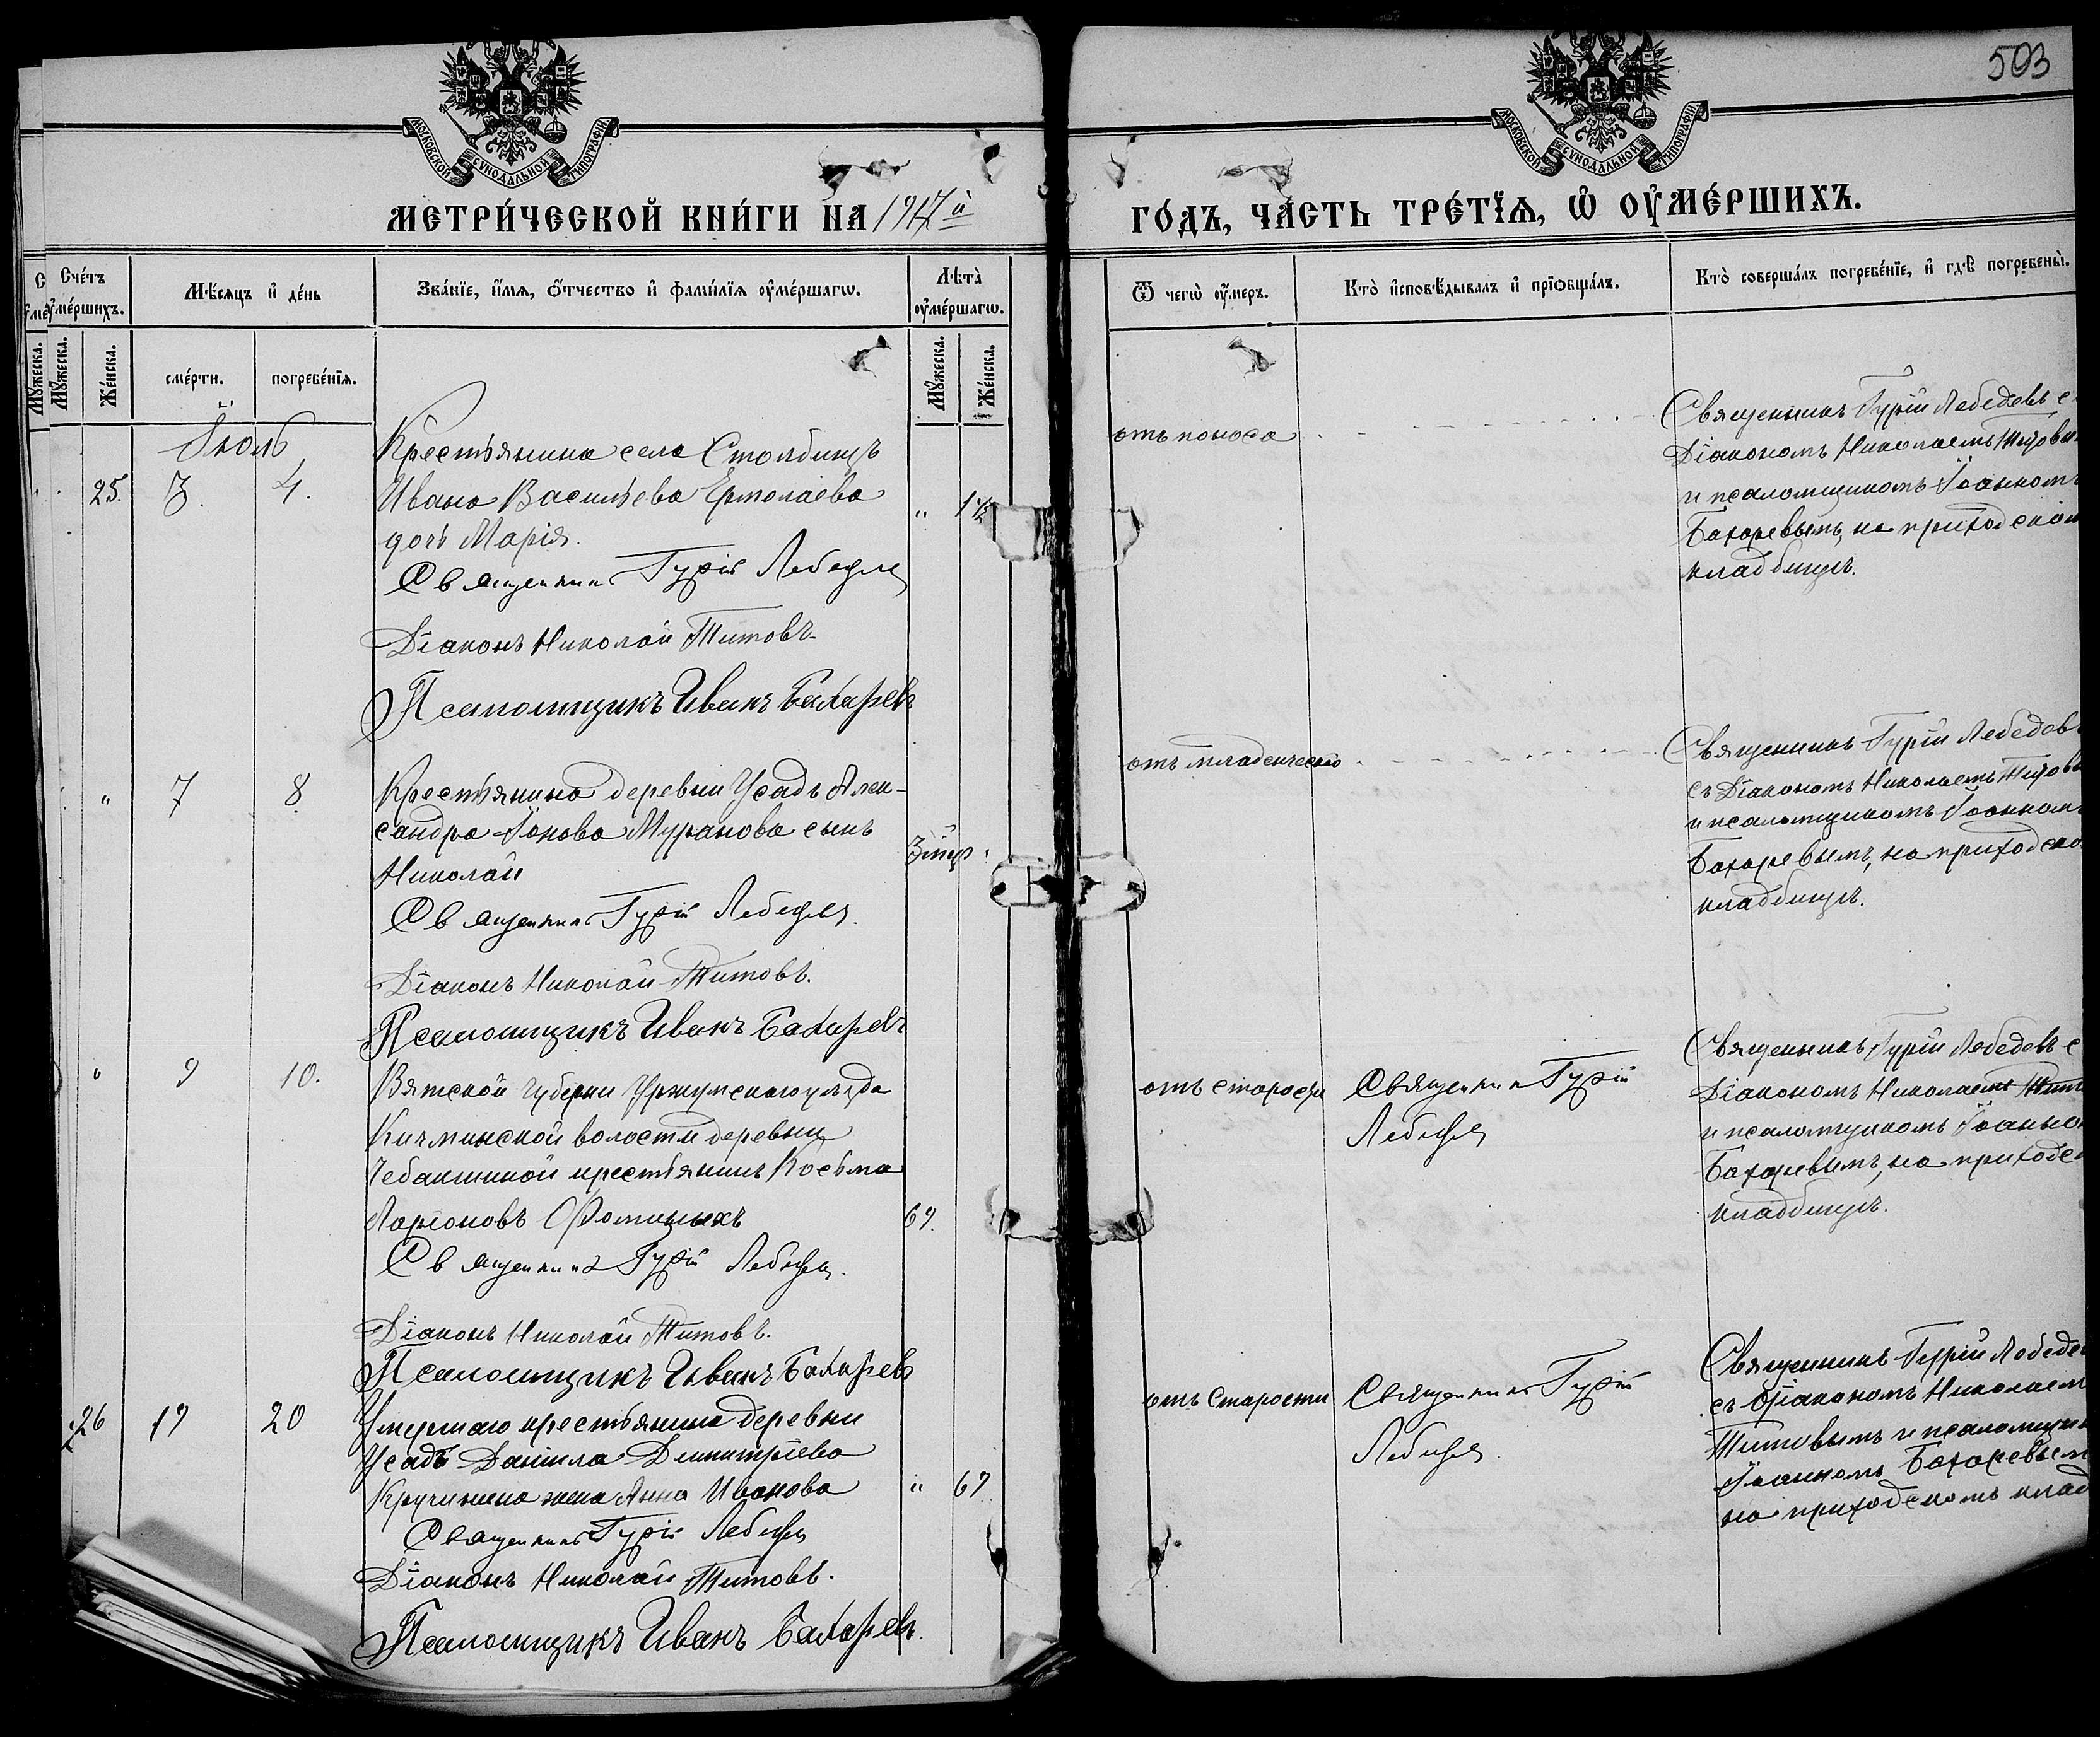 503
МОСКОВСКОЙ СѴНОДАЛЬНОЙ ТИПОГРАФІИ.
МОСКОВСКОЙ СѴНОДАЛЬНОЙ ТИПОГРАФІИ.
МЕТРИ́ЧЕСКОЙ КНИ́ГИ НА 1917й
ГО́ДЪ, ЧА́СТЬ ТРЕ́ТЇѦ, Ѡ҆ ОУ҆МЕ́РШИХЪ.
Сче́тъ оу҆ме́ршихъ.
Мѣ́сѧцъ и҆ де́нь
Зва́нїе, и҆́мѧ, ѻ҆́тчество и҆ фамі́лїѧ оу҆ме́ршагѡ.
Лѣ̑та̀ оу҆ме́ршагѡ.
Ѿ чегѡ̀ оу҆́меръ.
Кто̀ и҆сповѣ́дывалъ и҆ прїѻбща́лъ.
Кто̀ соверша́лъ погребе́нїе, и҆ гдѣ̀ погребены̀.
Мꙋ́жеска.
Мꙋ́жеска.
Же́нска.
сме́рти.
погребе́нїѧ.
Мꙋ́жеска.
Же́нска.
Іюль
25. 3. 4.
Крестьянина села Столбищъ
Ивана Васильева Ермолаева
дочь Марія.
" 1½
Священникъ Гурій Лебедевъ
Діаконъ Николай Титовъ.
Псаломщикъ Иванъ Бахаревъ
отъ поноса
Священникъ Гурій Лебедевъ с
Діакономъ Николаемъ Титовы
и псаломщикомъ Іоанномъ
Бахаревымъ, на приходском
кладбищѣ.
" 7 8
Крестьянина деревни Усадъ Алек-
сандра Іонова Муранова сынъ
Николай
3 мѣс.
Священникъ Гурій Лебедевъ.
Діаконъ Николай Титовъ.
Псаломщикъ Иванъ Бахаревъ
отъ младенческой
Священникъ Гурій Лебедев
съ Діакономъ Николаемъ Титовы
и псаломщикомъ Іоанном
Бахаревымъ, на приходско
кладбищѣ.
" 9 10.
Вятской губерни Уржумскаго уѣзда
Кичминской волости деревни
Чебакшиной крестьянинъ Косьма
Ларіоновъ Фоминыхъ
69.
Священникъ Гурій Лебедевъ.
Діаконъ Николай Титовъ.
Псаломщикъ Иванъ Бахаревъ
отъ старости
Священникъ Гурій
Лебедевъ
Священникъ Гурій Лебедевъ с
Діакономъ Николаемъ Тит
и псаломщикомъ Іоанно
Бахаревымъ, на приходс
кладбищѣ.
26 19 20
Умершаго крестьянина деревни
Усадъ Даніила Димитріева
Кручинина жена Анна Иванова
" 67
Священникъ Гурій Лебедевъ
Діаконъ Николай Титовъ.
Псаломщикъ Иванъ Бахаревъ.
отъ старости
Священникъ Гурій
Лебедевъ.
Священникъ Гурій Лебеде
съ Діакономъ Николаем
Титовымъ и псаломщик
Іоанномъ Бахаревым
на приходскомъ клад